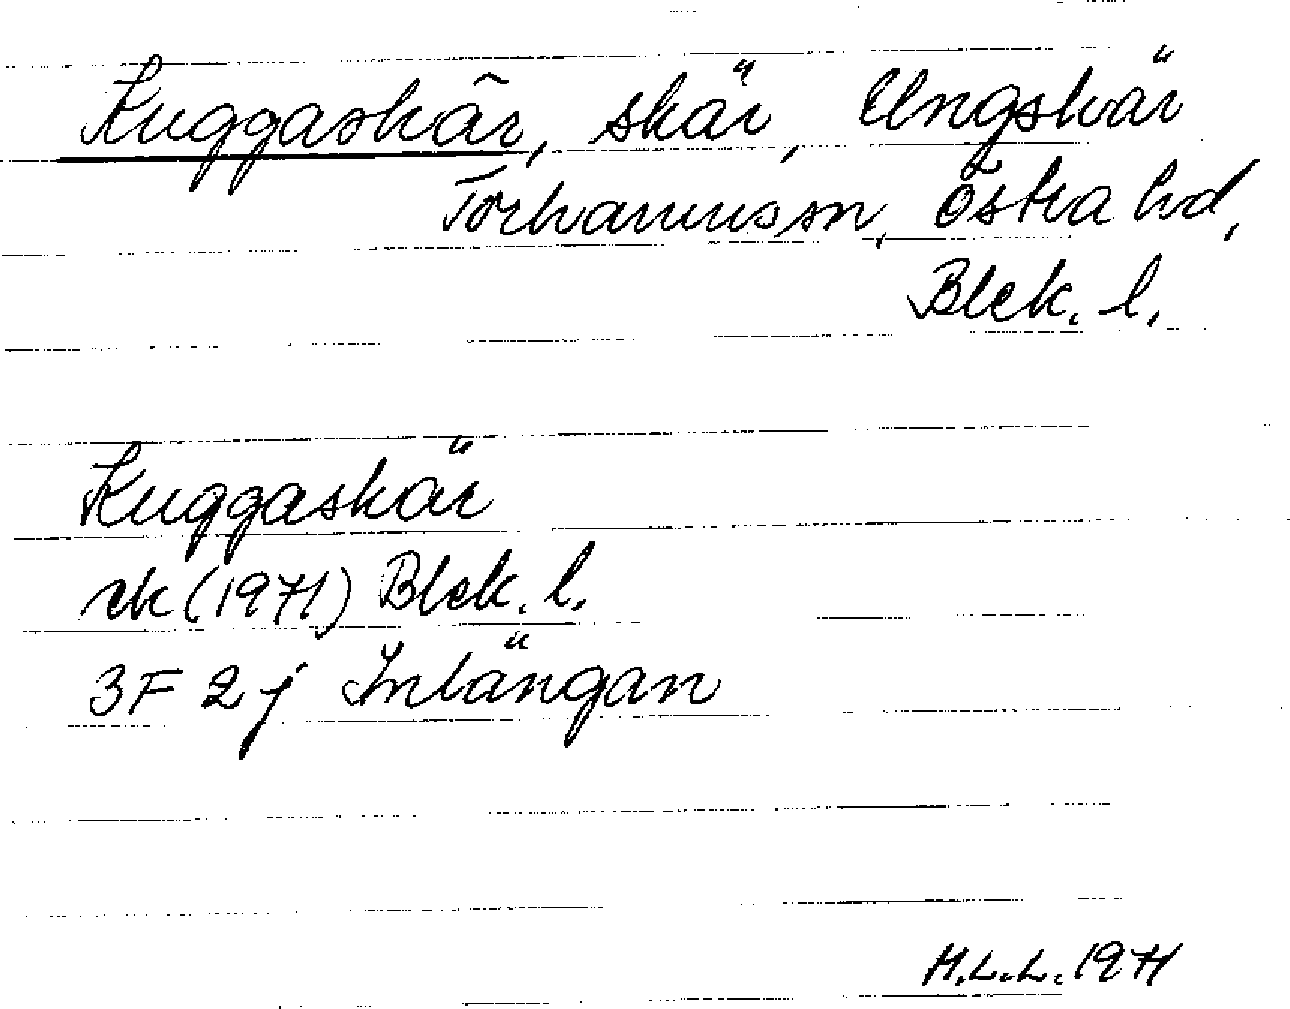 Kuggaskär, skär, Ungskär
Torhamns sn, Östra hd,
Blek. l.
Kuggaskär
ek (1971) Blek. l.
3F 2j Inlängan
H.L.L. 1971